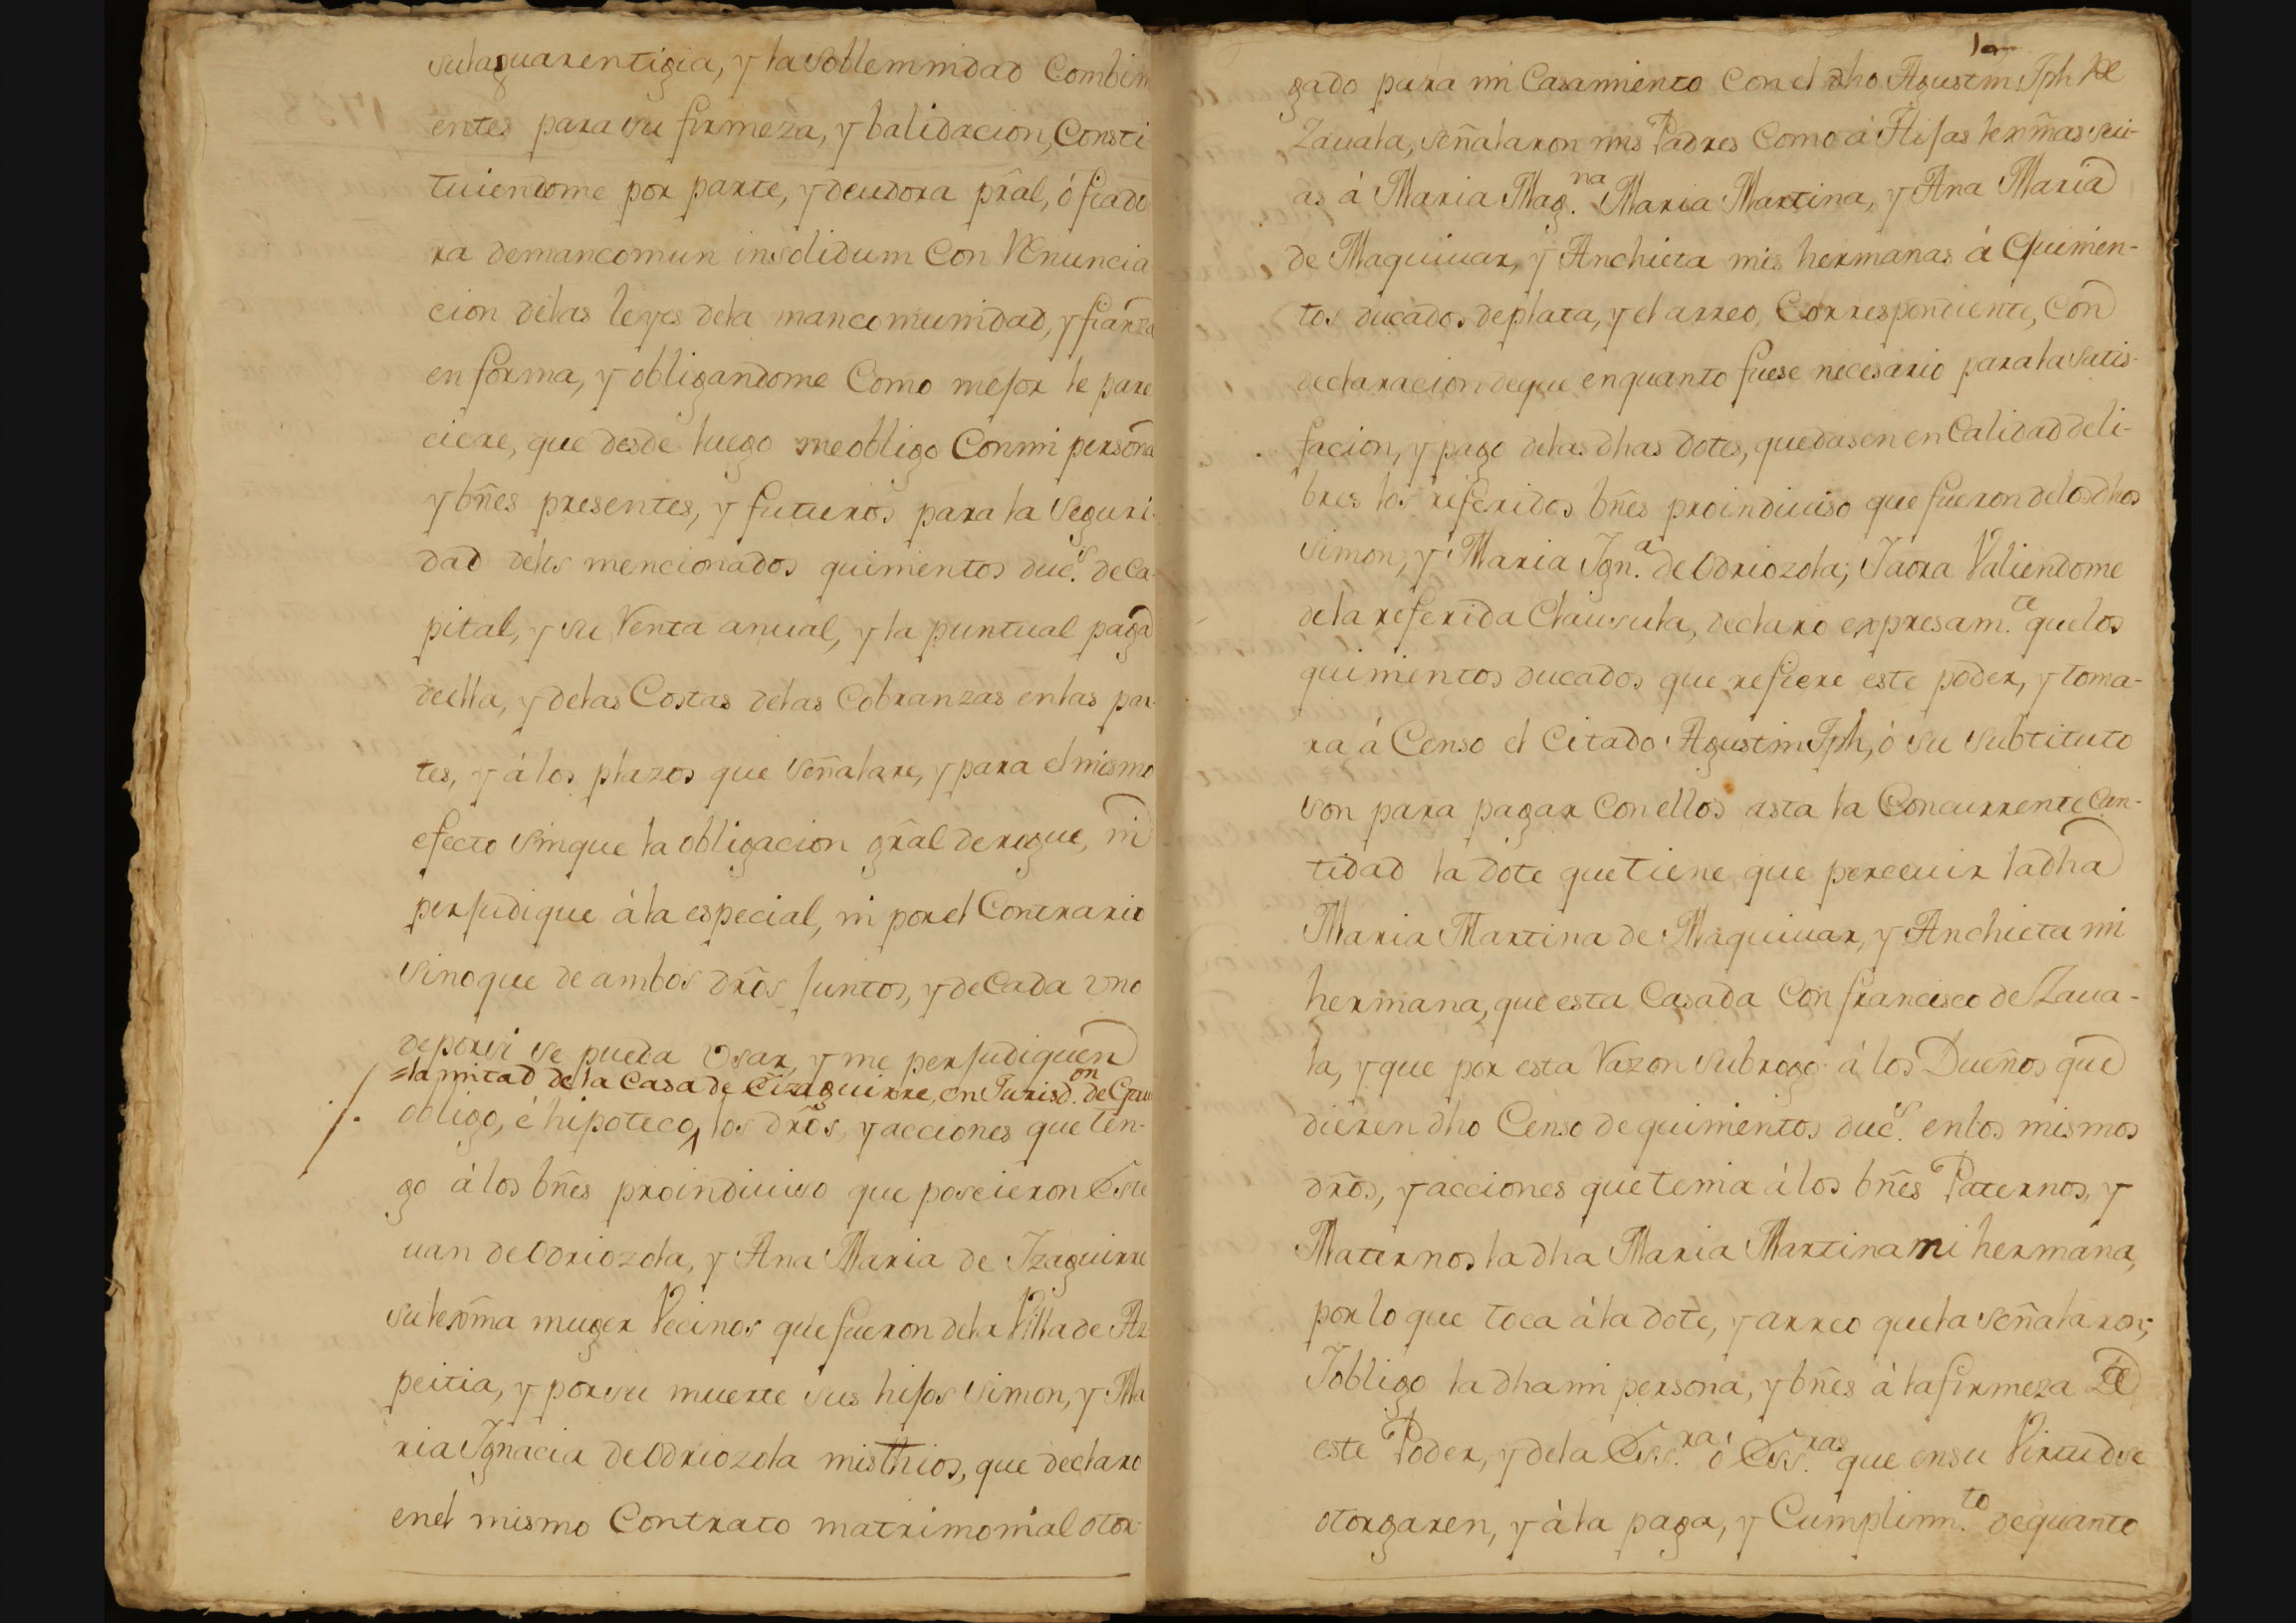 sulaguarentigia, y la sollemnidad Combini
entes para su firmeza, y balidacion, Consti
tuiendome por parte, y deudora prãl, ó fiado
ra demancomun insolidum Con Renuncia
cion delas leyes dela mancomunidad, y fianza
en forma, y obligandome Como mejor le pare
ciere, que desde luego me obligo Con mi persona
y bñes presentes, y futuros para la Seguri-
dad delos mencionados quinientos duc.s de Ca-
pital, y su Renta anual, y la puntual paga
deella, y delas Costas delas Cobranzas enlas par-
tes, y á los plazos que señalare, y para el mismo
efecto sinque la obligacion grãl derogue, ni
perjudique á la especial, ni por el Contrario
sinoque de ambos drõs juntos, y de Cada uno
deporsi se pueda Usar, y me perjudiquen
=la mitad de la Casa de Eizaguirre, en Jurisd.on de
obligo, é hipoteco, los drõs, y acciones que ten-
go á los bñes proindiuiso que poseieron Este
uan de Odriozola, y Ana Maria de Izaguirre
su lexma muger Vecinos que fueron dela Villa de Az
peitia, y por su muerte sus hijos Simon, y Ma
ria Ignacia de Odriozola mis thios, que declaro
enel mismo Contrato matrimonial otor-
gado para mi Casamiento Con el dho Agustin Jph de
Zauala, señalaron mis Padres Como á Hijas lexm̃as sui-
as á Maria Mag.na Maria Martina, y Ana Maria
de Maquiuar, y Anchieta mis hermanas á Quinien-
tos ducados de plata, y el arreo Correspondiente, Con
declaracion deque enquanto fuese necesario para la satis-
facion, y pago delas dhas dotes, quedasen en Calidad de li-
bres los referidos bñes proindiuiso que fueron delos dhos
Simon, y Maria Ign.a de Odriozola; Iaora Valiendome
de la referida Clausula, declaro expresam.te que los
quinientos ducados que refiere este poder, y toma-
ra á Censo el Citado Agustin Jph, ó su Subtituto
son para pagar Con ellos asta la Concurrente Can-
tidad la dote que tiene que perceuir la dha
Maria Martina de Maquiuar, y Anchieta mi
hermana, que esta Casada Con francisco de Zaua-
la, y que por esta Razon subrogo á los Dueños que
dieren dho Censo de quinientos duc.s enlos mismos
drõs, y acciones que tenia á los bñes Paternos, y
Maternos la dha Maria Martina mi hermana,
por lo que toca á la dote, y arreo que la señalaron;
Iobligo la dha mi persona, y bñes á la firmeza de
este Poder, y dela Ess.ra ó Ess.ras que en su Virtud se
otorgaren, y á la paga, y Cumplim.to dequanto